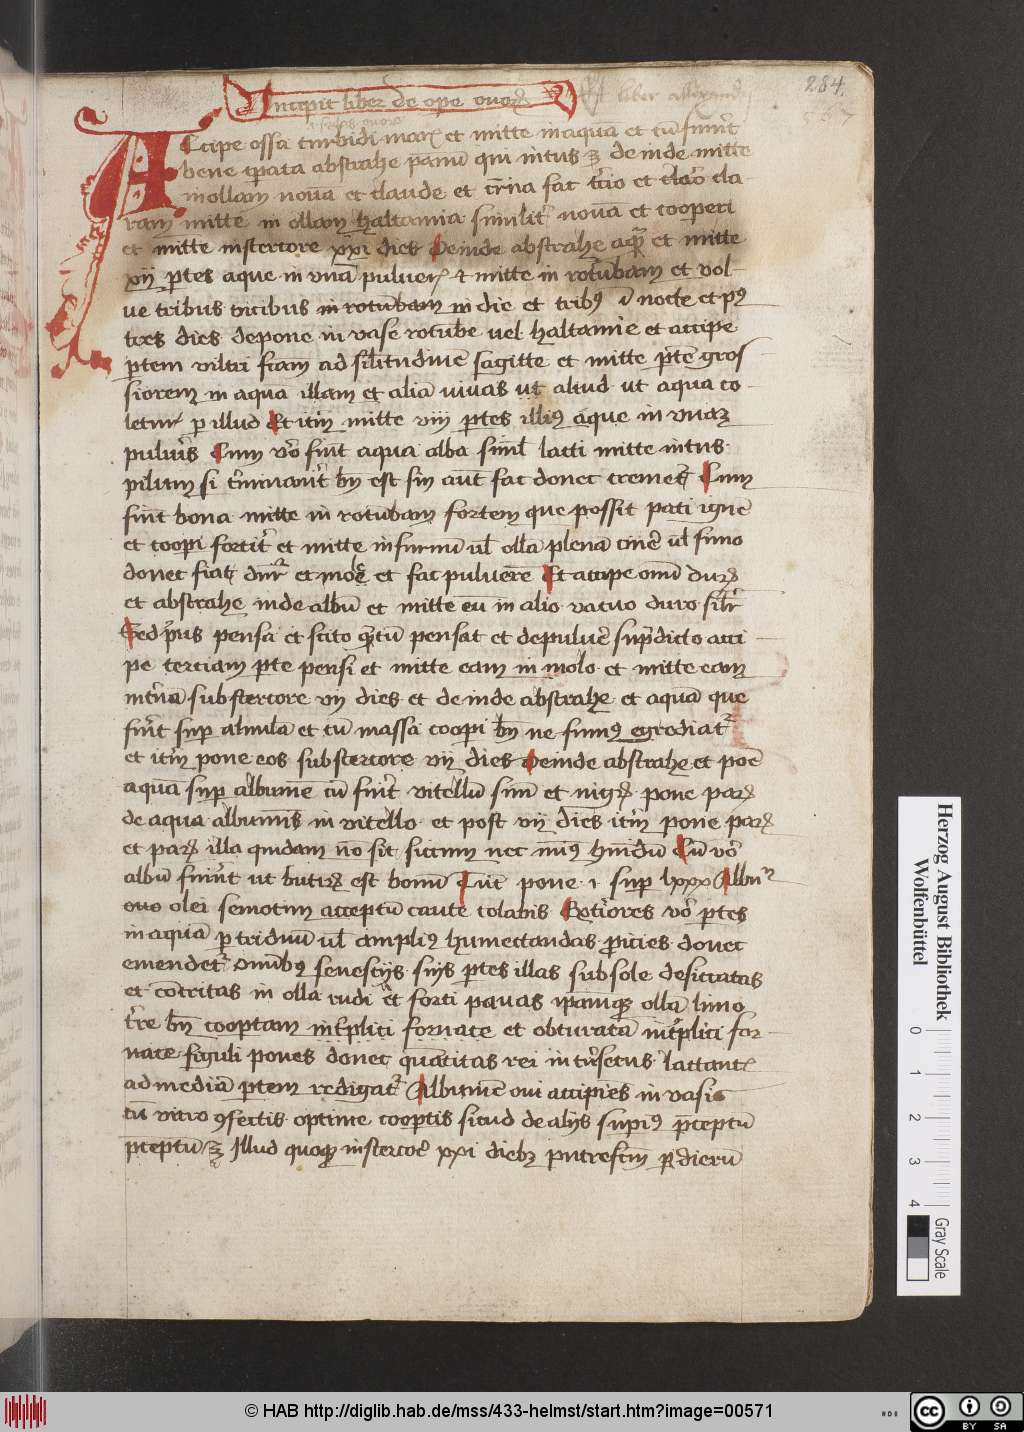 Incipit liber de ope ouoꝝ
liber allexand
284.
567
Accipe ossa turbidi mar et mitte in aquā et cū fuer̄t
bene tꝑata abstrahe pannū qui intus ꝫ deinde mitte
in ollam nouā et claude et t'na fac t'cio et claro cla
ram mitte in ollam haltamia similit' nouā et cooperi
et mitte in stercore xxi dies Deinde abstrahe aqꝫ et mitte
xij ꝑtes aque in vnā pulueꝝ et mitte in rotūbam et vol
ue tribus vicibus in rotūbam in die et tribꝰ ī nocte et pꝰ
tres dies depone in vase rotūbe uel haltamie et accipe
ꝑtem viltri fiam ad silitudinē sagitte et mitte ꝑtē gros
siorem in aqua illam et aliā viuas ut altud ut aqua co
letur ꝑ illud Et it'ū mitte viij ꝑtes illiꝰ aque in vnaꝫ
puluis Cum vo fuit aqua alba simil lacti mitte intus
pilum si t'minauit bn est sin aut fac donec cremet Cum
fuit bona mitte in rotūbam fortem que possit pati ignē
et coopi fortit' et mitte in furnū ul ollā plenā cinē ul fimo
donec fiat dur et mole et fac puluerē Et accipe omū duꝝ
et abstrahe inde albū et mitte eū in alio vacuo duro silr
Sed pus pensa et scito qtū pensat et de puluē supdicto acci
pe terciam pte pensi et mitte eam in molo et mitte eam
int'na sub stercore vij dies et deinde abstrahe et aquā que
fuit sup almulā et cū massa coopi bn ne fumꝰ egrediat'
et it'ū pone eos sub stercore vij dies Deinde abstrahe et ponē
aquā sup albumē cū fuit vitellū simī et nigꝝ pone paꝝ
de aqua albumīs in vitello et post vij dies it'ū pone paꝝ
et paꝝ illa quidam nō sit siccum nec nimꝰ humidū Cū vo
albū fuiit ut butiꝝ est bonū Cut pone i sup lxxx Albu'
ouo olei semotim acceptū caute colabis Grotiores vo ptes
in aquā ꝑ triduū ul ampliꝰ humectandas proicies donec
emendet' Omibꝰ senescijs suis ptes illas sub sole desiccatas
et cōtritas in olla rudi et forti pquas ipamqꝫ ollā limo
t're bn cooptam int'pliti fornace et obturatā mt'pliti for
nace figuli pones donec quātitas rei int'secus lactant'
ad mediā ptem redigat' Albumē oui accipies in vasis
cū vitro ꝯfectis optime cooptis sicud de alijs supiꝰ pceptū
pceptū ꝫ Illud quoqꝫ in stercoē xxi diebꝫ putrescin ꝑ dierū
Herzog August Bibliothek
Wolfenbüttel
0 1 2 3 4
Gray Scale
© HAB http://diglib.hab.de/mss/433-helmst/start.htm?image=00571
HAB
cc
BY SA